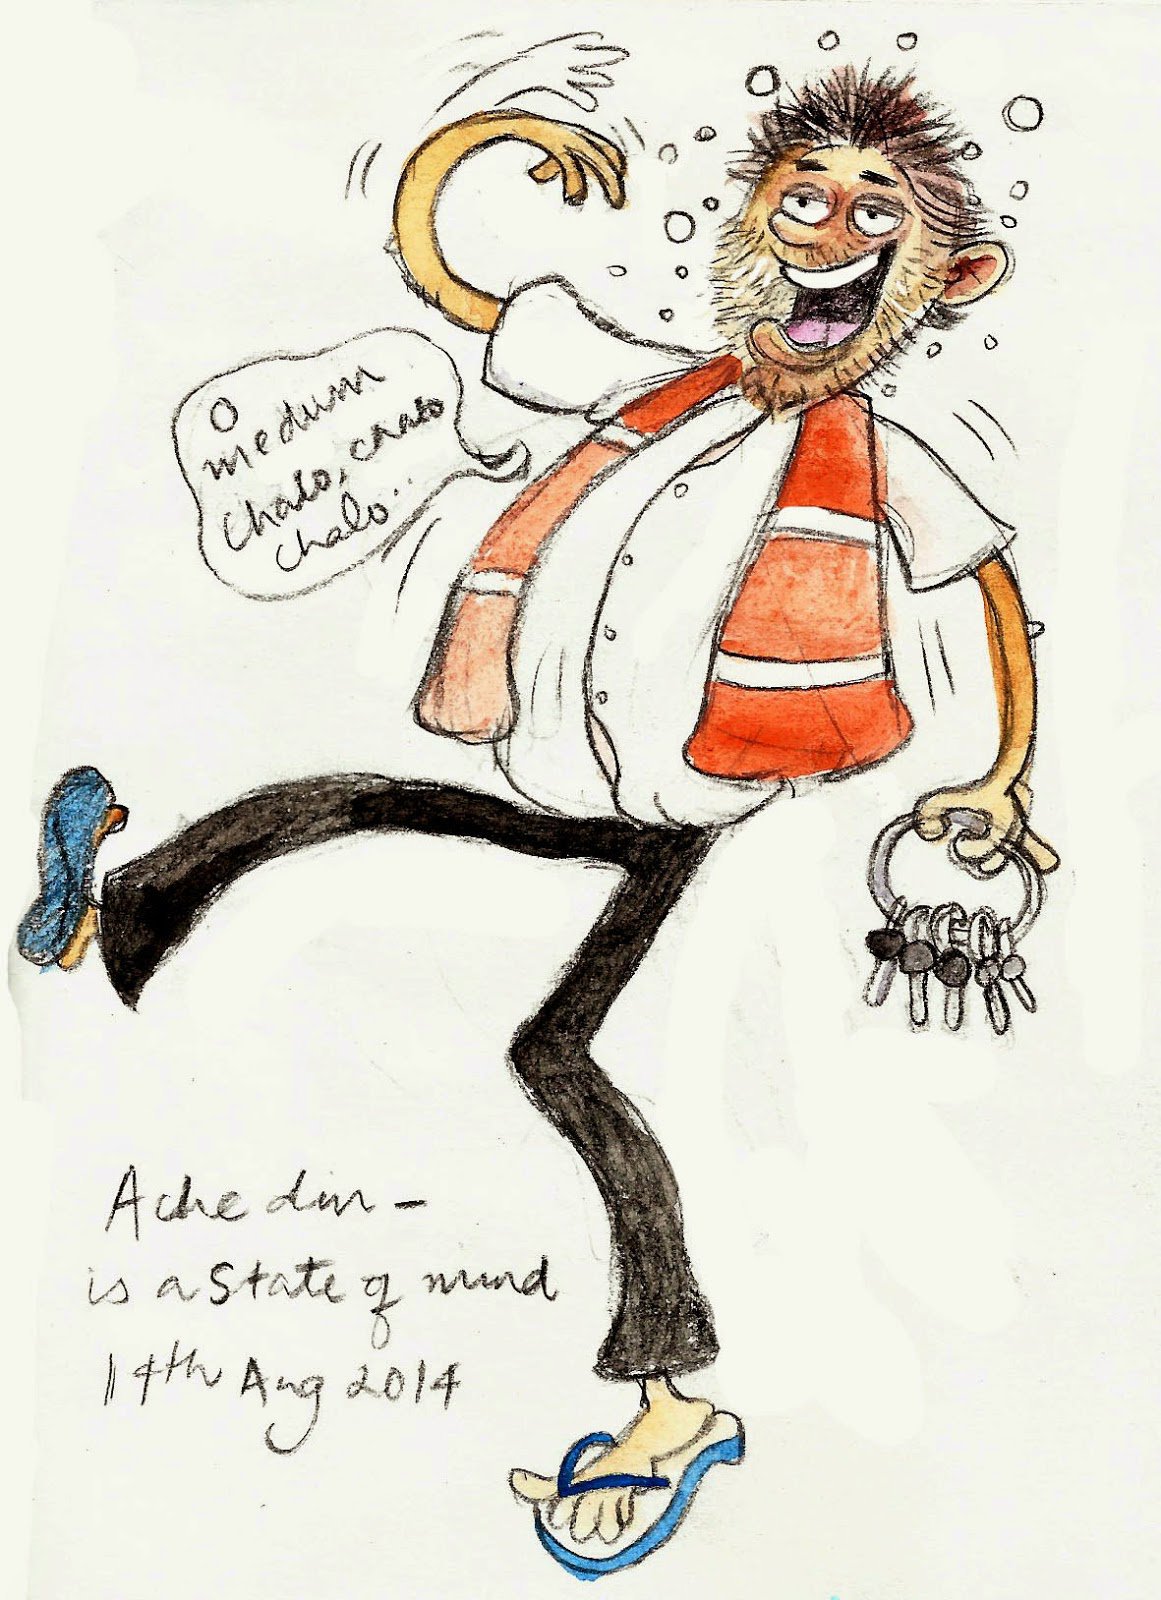 O
medum
chalo, chalo
chalo..
Ache din -
is a state of mind
14th Aug 2014